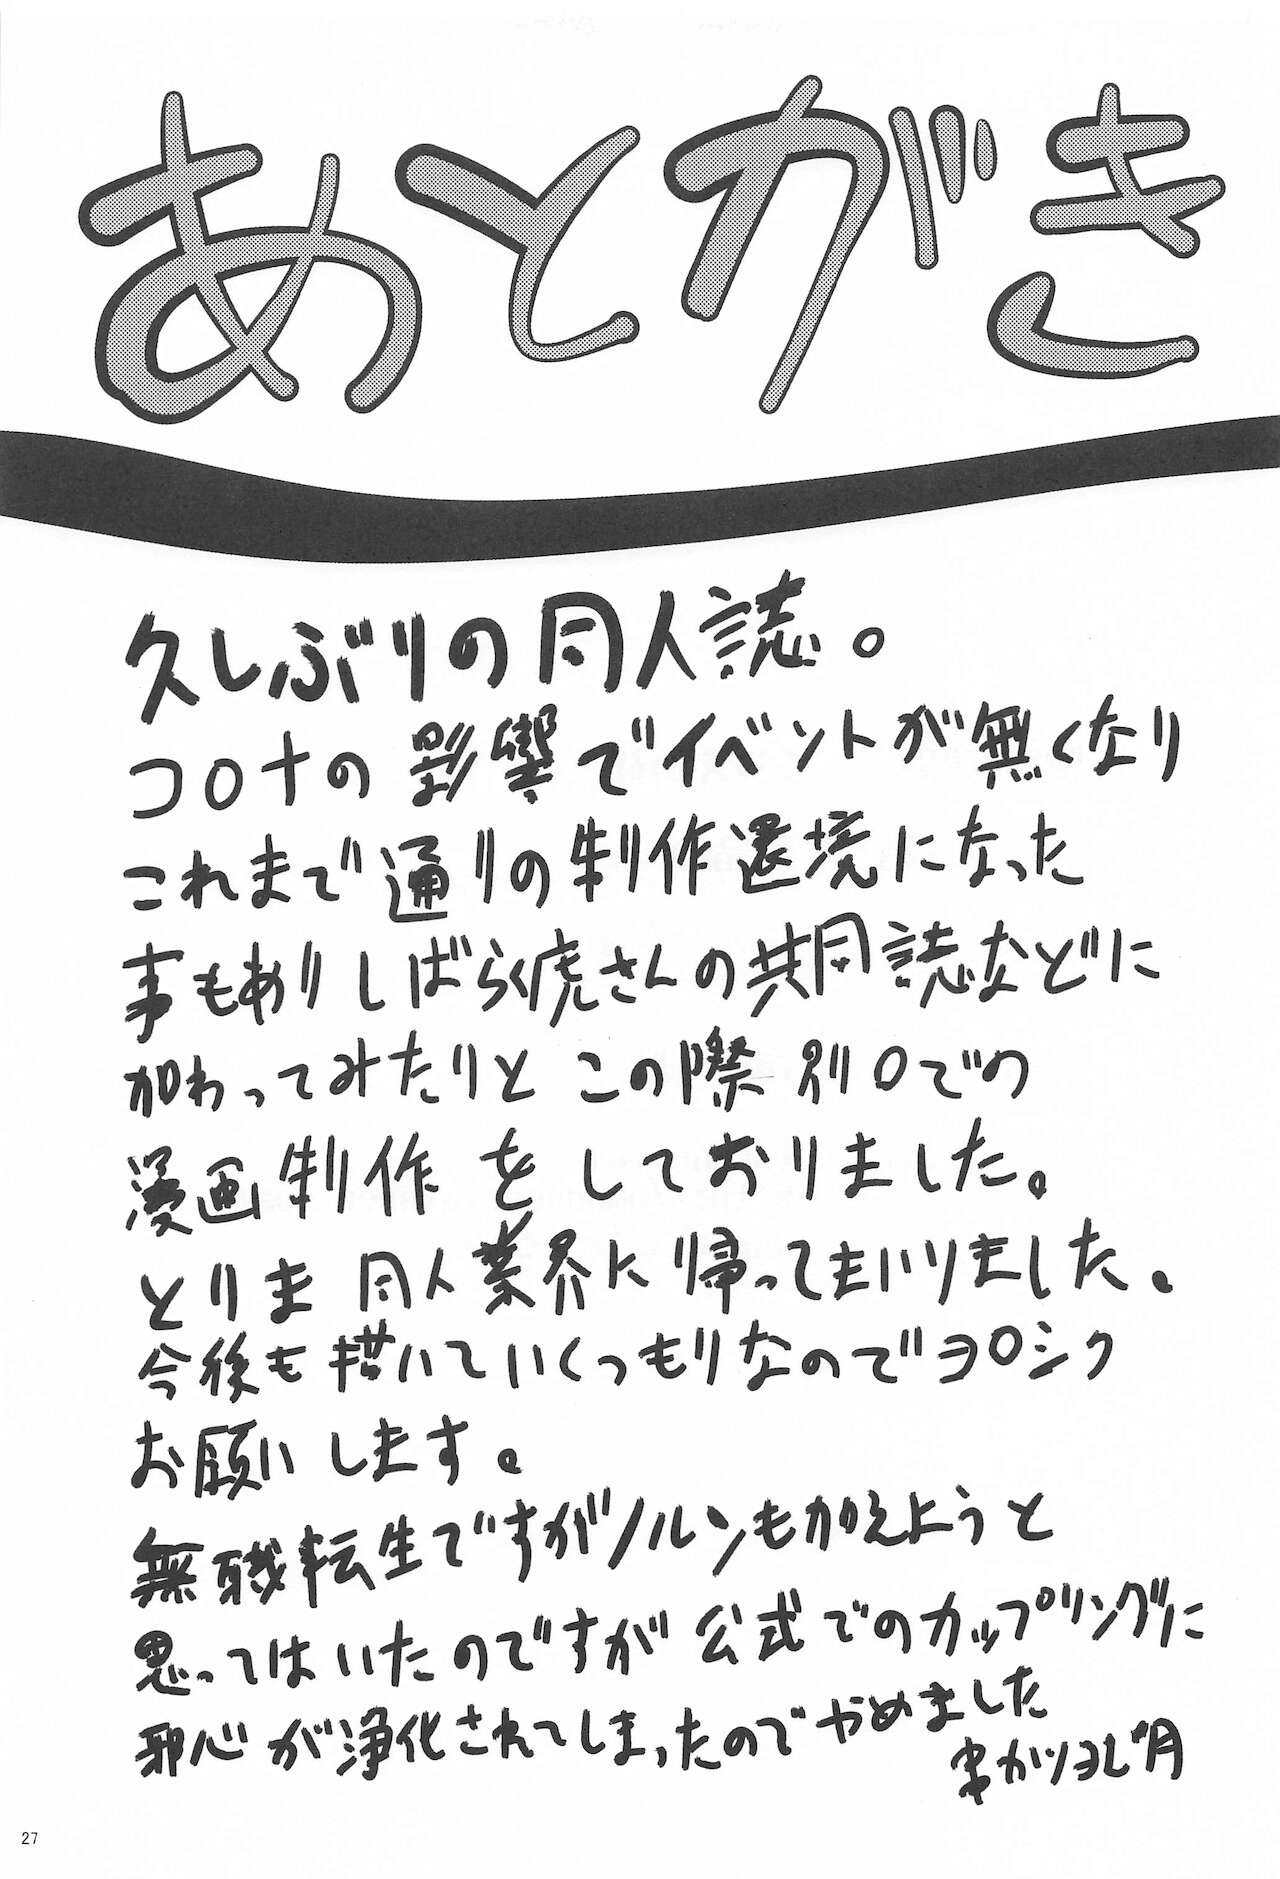 あとがき
久しぶりの同人誌。
コロナの影響でイベントが無くなり
これまで通りの制作環境になった
事もありしばらく虎さんの共同誌などに
加わってみたりと この際 別口での
漫画制作 をしておりました。
とりま 同人業界に帰ってまいりました。
今後も描いていくつもりなのでヨロシク
お願いします。
無職転生ですがノルンもかえようと
思ってはいたのですが 公式でのカップリングに
邪心が浄化されてしまったのでやめました
串かつヨし月
27